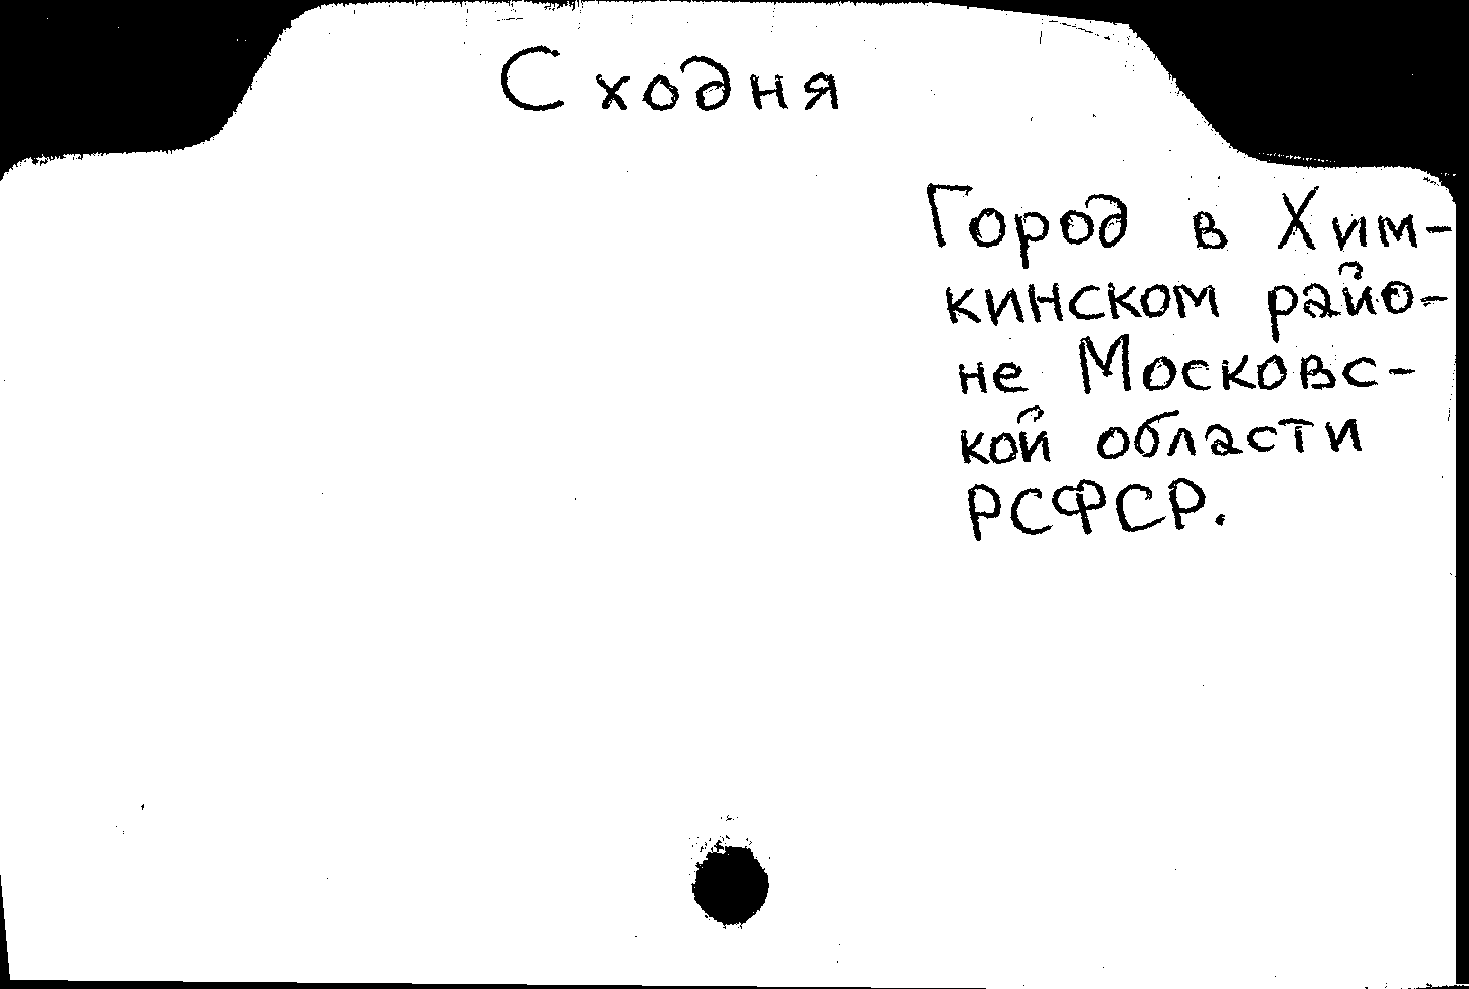 Сходня
Город в Хим-
кинском райо-
не Московс-
кой области
РСФСР.